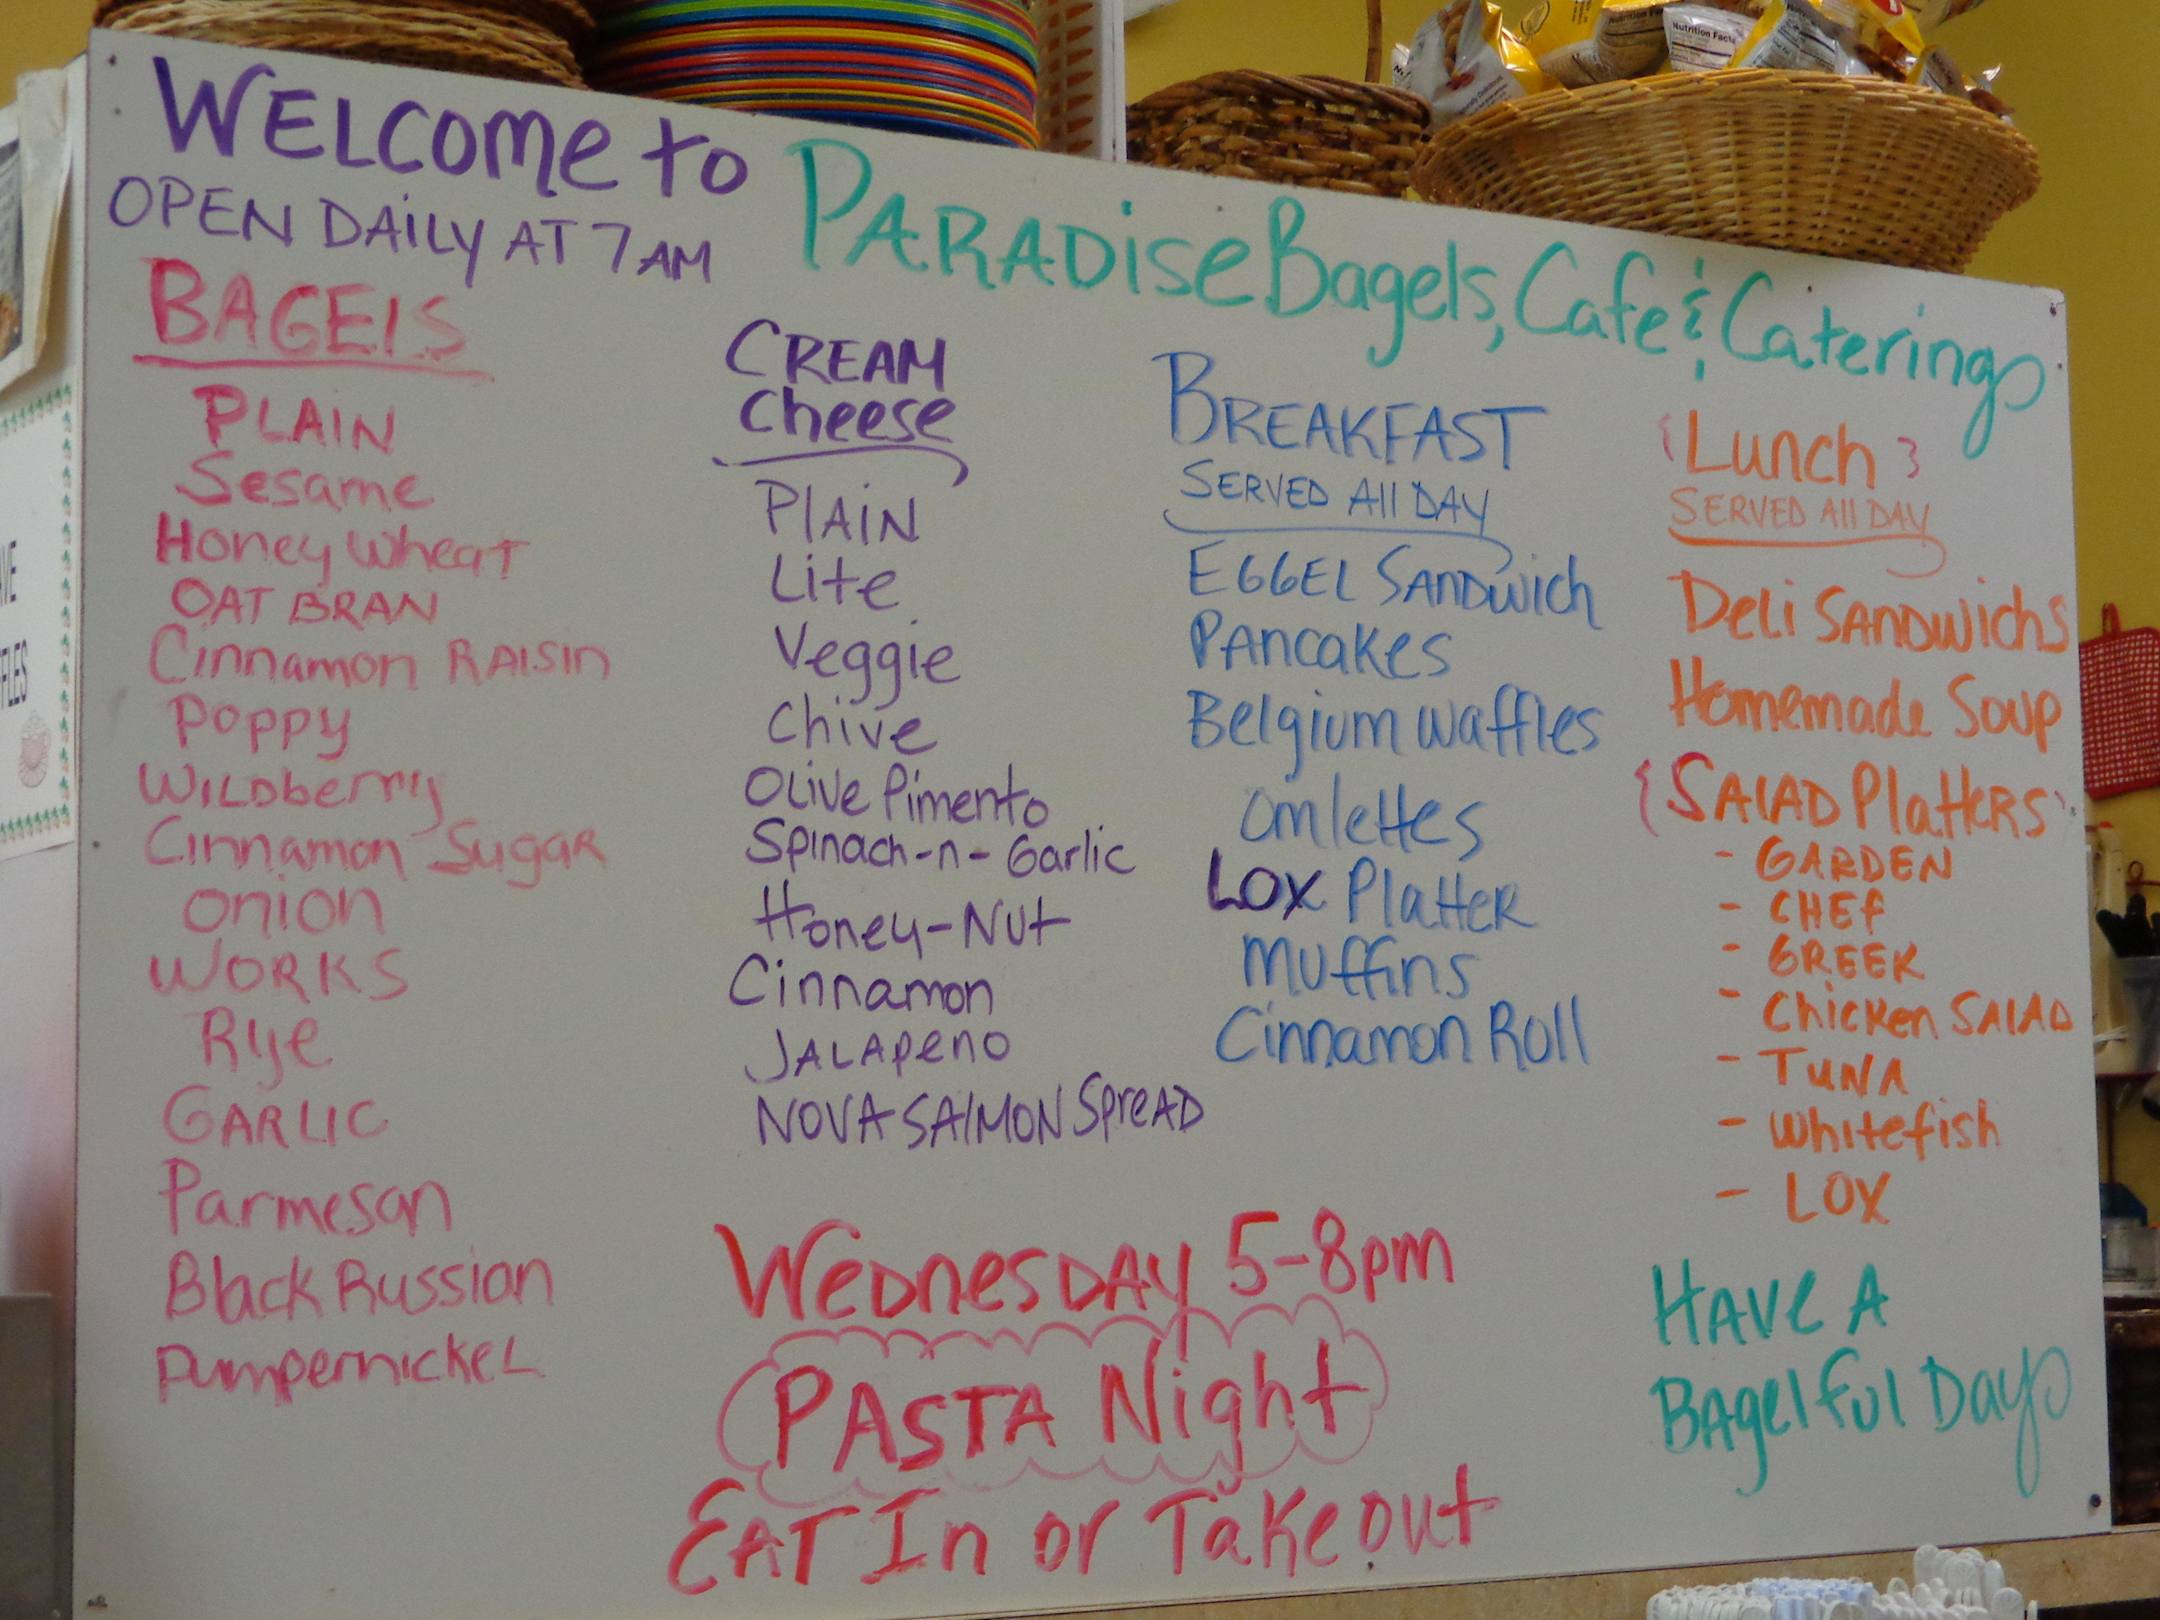 WELcome to
OPEN DAiLY AT 7 AM
PARADise Bagels, Cafe & Catering
BAGElS
PLAiN
Sesame
Honey Wheat
OAT BRAN
Cinnamon RAisin
Poppy
WiLDberry
Cinnamon SugaR
Onion
WORKS
Rye
GARLIC
Parmesan
Black Russian
PumpernickeL
CREAM
Cheese
PlAiN
Lite
Veggie
Chive
OLive Pimento
Spinach-n-Garlic
Honey-Nut
Cinnamon
JALApeno
NOVA SAlMON SpreAD
BREAKFAST
SERVED All DAY
EGGEL SANDwich
PANcakes
Belgium waffles
Omlettes
LOX PlatteR
Muffins
Cinnamon Roll
{Lunch}
SERVED All DAY
Deli SANDwichs
Homemade Soup
{SAlAD PlatteRS}
- GARDEN
- CHEf
- GREEK
- ChicKen SAlAD
- TUNA
- Whitefish
- LOX
WeDnesDAY 5-8pm
PASTA Night
EAT In or Takeout
HAVe A
BAgelful Day
Nutrition Facts
Nutrition Facts